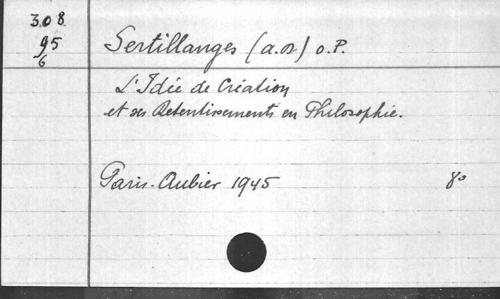 308
95
6
Sertillanges (A.D) O.P.
L'Idée de Création
et ses Retentissements en Philosophie.
Paris. Aubier 1945 8º